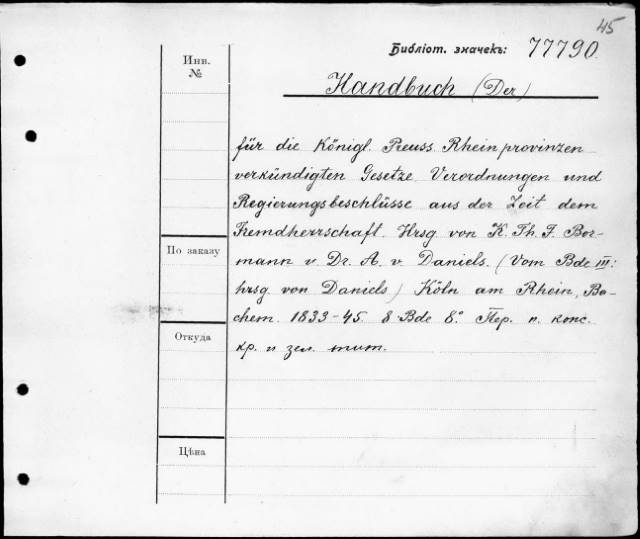 45
Библіот. значекъ: 77790
Handbuch (Der)
Инв.
№
für die Königl. Preuss. Rheinprovinzen
verkündigten Gesetze Verordnungen und
Regierungsbeschlüsse aus der Zeit dem
Fremdherrschaft. Hrsg. von K. Th. F. Bor-
По заказу
mann v. Dr. A. v. Daniels. (Vom Bde III:
hrsg. von Daniels) Köln am Rhein, Ba-
chem. 1833-45 8 Bde 8.° Пер. п. конс.
Откуда
кр. и зел. тит.
Цѣна